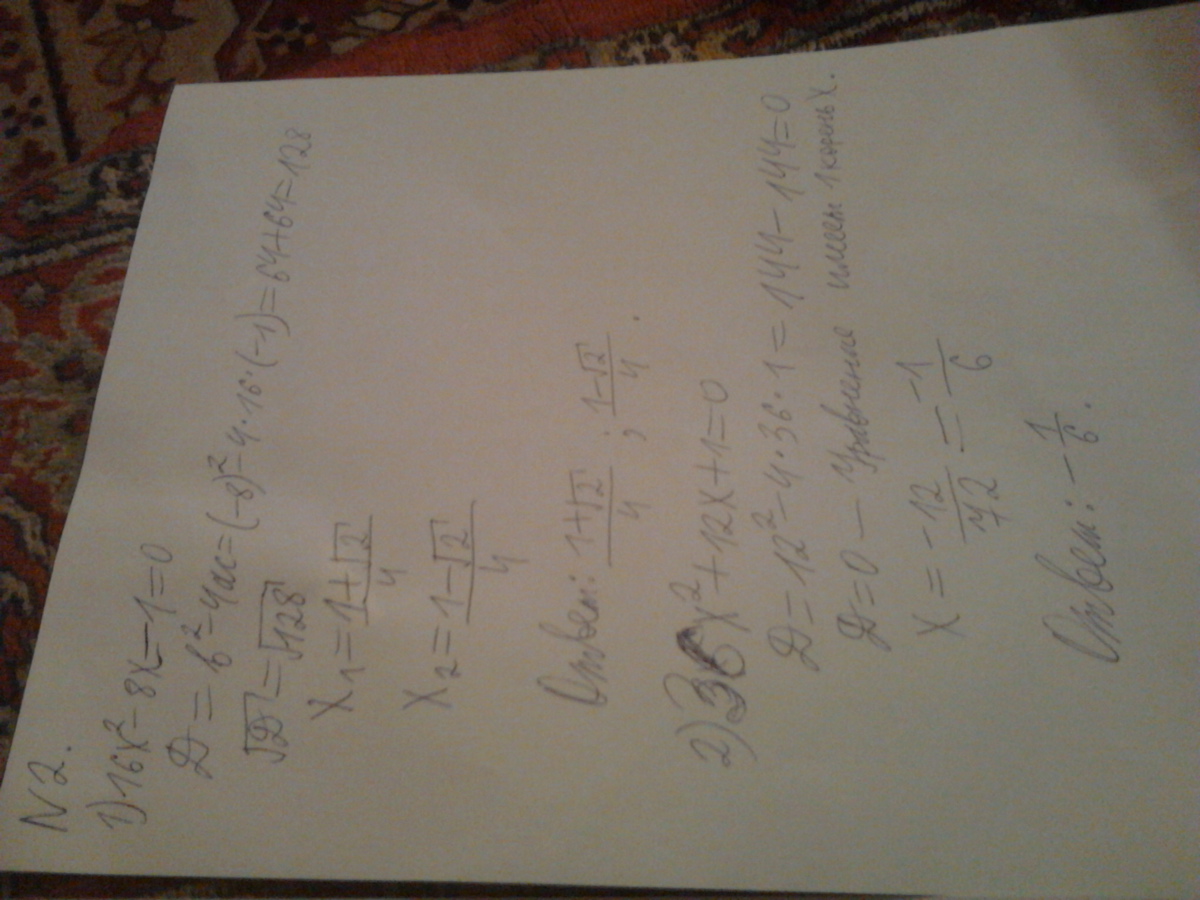 N 2.
1) 16x² - 8x - 1 = 0
D = b² - 4ac = (-8)² - 4 · 16 · (-1) = 64 + 64 = 128
√D = √128
X₁ = (1 + √2)/4
X₂ = (1 - √2)/4
Ответ: (1 + √2)/4 ; (1 - √2)/4 .
2) 36x² + 12x + 1 = 0
D = 12² - 4 · 36 · 1 = 144 - 144 = 0
D = 0 — Уравнение имеет 1 корень x.
X = -12/72 = -1/6
Ответ: -1/6 .